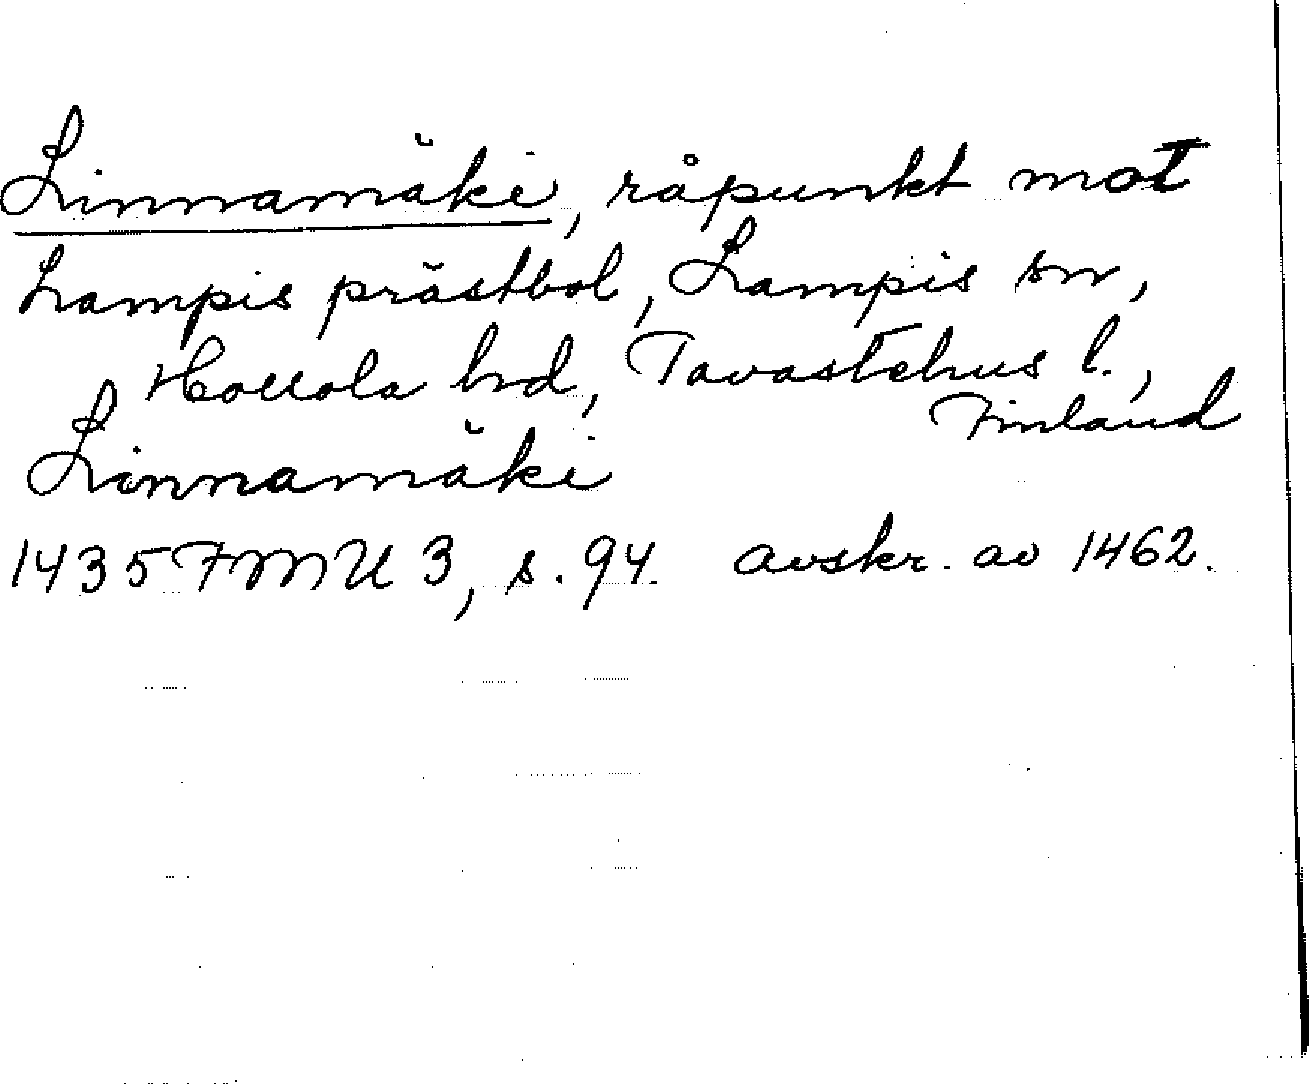 Linnamäki, råpunkt mot
Lampis prästbol, Lampis sn,
Hollola hd, Tavastehus l.,
Finland
Linnamäki
1435 FMU 3, s. 94. avskr. av 1462.